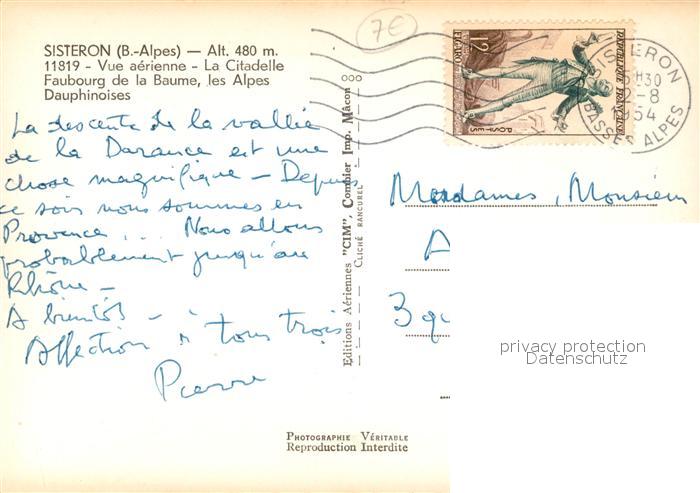 7€
SISTERON (B.-Alpes) — Alt. 480 m.
11819 - Vue aérienne - La Citadelle
Faubourg de la Baume, les Alpes
Dauphinoises
La descente de la vallée
de la Durance est une
chose magnifique — Depuis
ce soir nous sommes en
Provence... Nous allons
probablement jusqu'au
Rhône —
A bientôt —
Affection à tous trois
Pierre
Editions Aériennes "CIM", Combier Imp. Mâcon
CLICHÉ RANCUREL
PHOTOGRAPHIE VÉRITABLE
Reproduction Interdite
12
FIGARO
REPUBLIQUE FRANÇAISE
POSTES
SISTERON
H30
-8
1954
BASSES ALPES
Mesdames, Monsieur
A
3 qu
privacy protection
Datenschutz